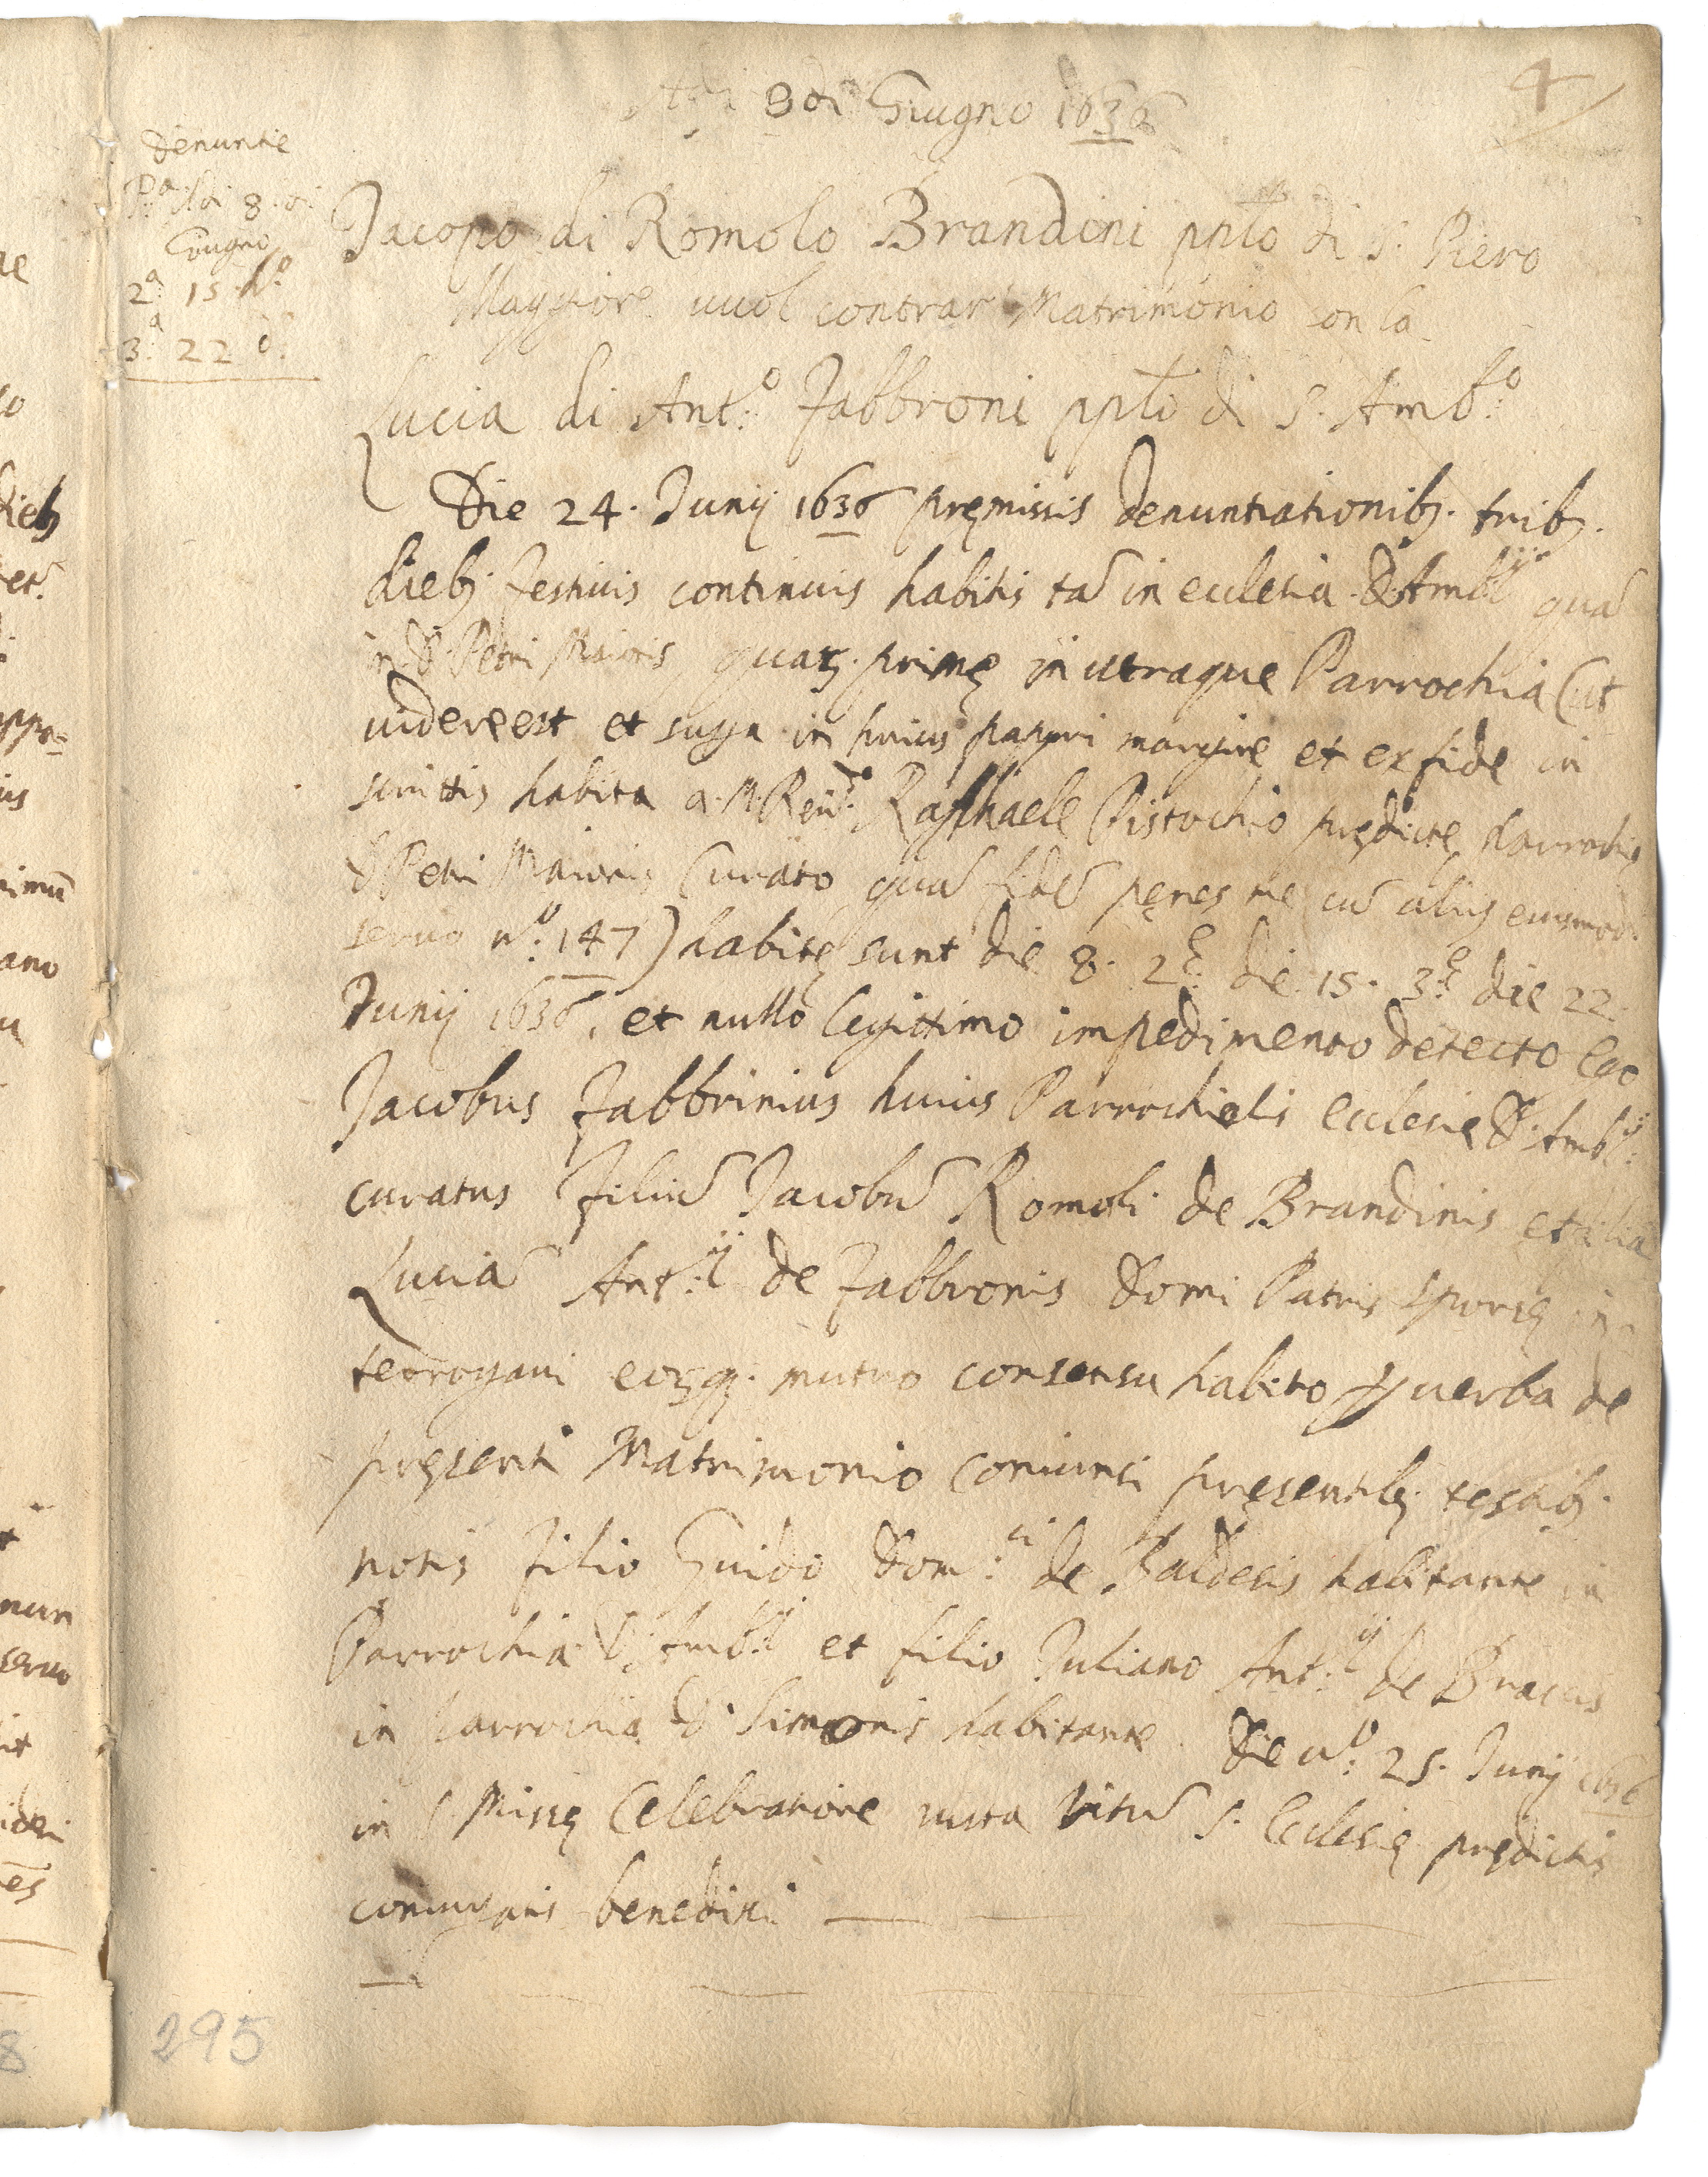 4
Adi 8 di Giugno 1636
Denuntie
P.a adi 8 di
Giugno
2.a 15 d.o
3.a 22 d.o
Jacopo di Romolo Brandini pplo di S. Piero
Maggiore vuol contrar Matrimonio con la
Lucia di Ant.o Fabbroni pplo di S. Amb.o
Die 24. Junij 1636 pręmissis denuntiationib9. trib9.
dieb9. festivis continuis habitis tā in ecclesia D. Amb.ij quā
in D. Petri Maioris, quar. primę in utraque Parrochia (ut
videre est et supra in huius papyri margine et ex fide in
scrittis habita a. M. Reu.do Raphaele Pistochio prędictę Parrochię
D. Petri Maioris Curato, quā fidē pęnes me cū alijs eiusmodi.
servo n.o 147) habitę sunt die 8. 2.ę die 15. 3.ę die 22.
Junij 1636, et nullo legittimo impedimento detecto Ego
Jacobus Fabbrinius huius Parrochialis Ecclesię D. Amb.ij
curatus filiū Jacobū Romoli de Brandinis et filiā
Luciā Ant.ij de Fabbronis Domi Patris sponsę in-
terrogavi eorq. mutuo consensu habito p verba de
pręsenti Matrimonio coniunxi pręsentib9. testib9.
notis filio Guido Dom.ci de Baldesis habitante in
Parrochia D. Amb.ij et filio Juliano Ant.ij de Braccis
in Parrochia D. Simonis habitante. Die v.o 25. Junij 1636
in S. Missę Celebratione iuxta ritū S. Ecclesię prędictis
coniugatis benedixi
295